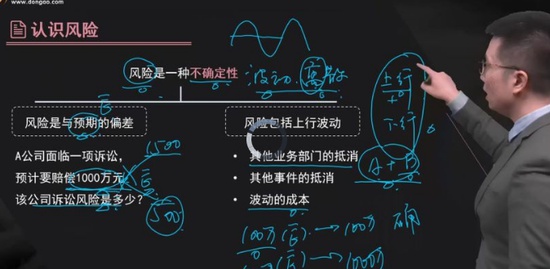 www.dongao.com
认识风险
风险是一种不确定性
波动 离散
风险是与预期的偏差
E
A公司面临一项诉讼,
预计要赔偿1000万元
该公司诉讼风险是多少?
1500
E
500
风险包括上行波动
• 其他业务部门的抵消
• 其他事件的抵消
• 波动的成本
上行
+
下行
A+B
100万(E)→100万
确